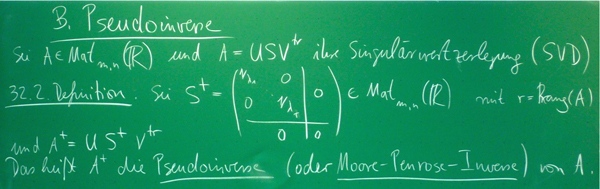 B. Pseudoinverse
Sei A ∈ Mat_{m,n}(ℝ) und A = USV^{tr} ihre Singulärwertzerlegung (SVD)
32.2 Definition: Sei S⁺ = ( 1/λ₁ 0 0 ; 0 1/λᵣ 0 ; 0 0 ) ∈ Mat_{m,n}(ℝ) mit r = Rang(A)
und A⁺ = U S⁺ V^{tr}
Das heißt A⁺ die Pseudoinverse (oder Moore-Penrose-Inverse) von A.